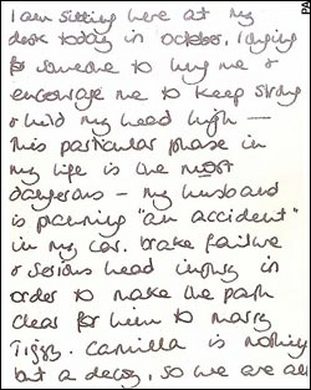 I am sitting here at my
desk today in october, longing
for someone to hug me &
encourage me to keep strong
& hold my head high —
this particular phase in
my life is the most
dangerous – my husband
is planning "an accident"
in my car. brake failure
& serious head injury in
order to make the path
clear for him to marry
Tiggy. Camilla is nothing
but a decoy, so we are
PA